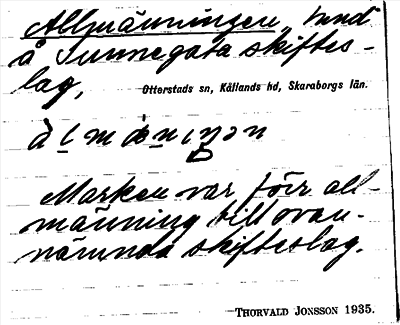 Allmänningen, hmd
å Tunnegata skiftes-
lag,
Otterstads sn, Kållands hd, Skaraborgs län.
Marken var förr all-
männing till ovan-
nämnda skifteslag.
THORVALD JONSSON 1935.